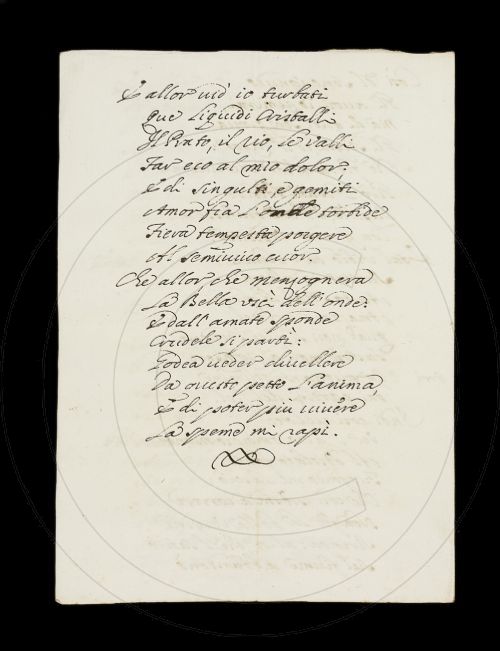 E allor vid' io turbati
Que' liquidi Cristalli
Il Prato, il rio, le valli
Far eco al mio dolor.
E di singulti, e gemiti
Amor fra l'onde torbide
Fiera tempesta porgere
Al semivivo cuor.
Che allor, che menzognera
La Bella uscì dell'onde:
E dall'amate sponde
Crudele si partì:
Godea veder divellere
Da questo petto l'anima,
E di poter più vivere
La speme mi rapì.